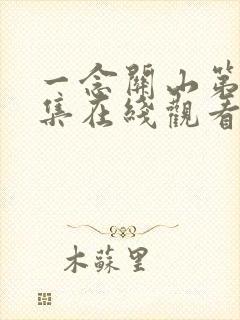 一念關山第
集在綫觀看
木蘇里